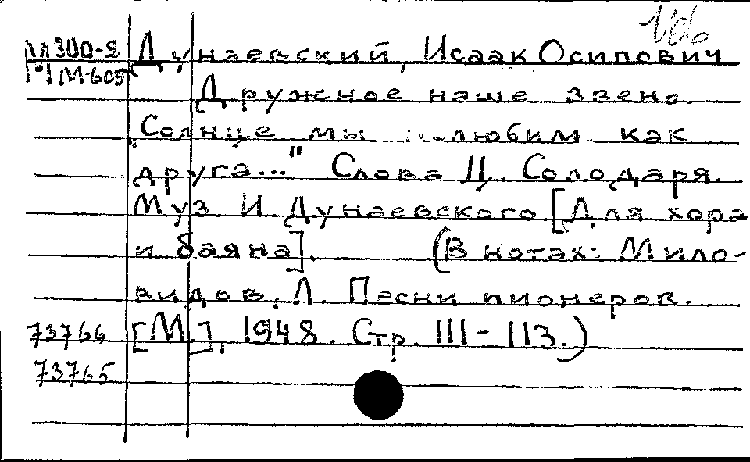 М300-8 Дунаевский, Исаак Осипович
М-605 Дружное наше звено.
„Солнце мы полюбим как
друга..." Слова Ц. Солодаря.
Муз. И. Дунаевского [Для хора
и баяна]. (В нотах: Мило-
видов, Л. Песни пионеров.
73766 [М.], 1948. Стр. 111-113.)
73765